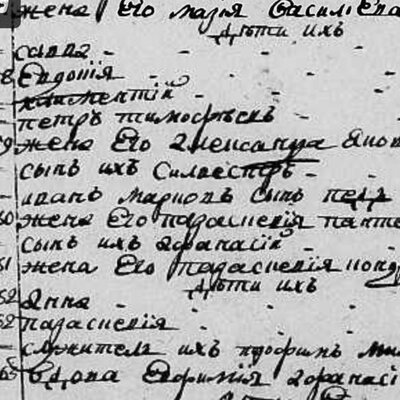 жена Его марія Василіева
дѣти ихъ
савва
8 Евдокія
климентій
петръ тимофѣевъ
59 жена Его Александра
сынъ ихъ Силвестръ
иванъ марковъ сынъ
60 жена Его параскевія панте
сынъ ихъ афанасій
61 жена Его параскевія
дѣти ихъ
52 Анна
62 параскевія
служитель ихъ трофимъ
63 вдова Евфимія афанасі